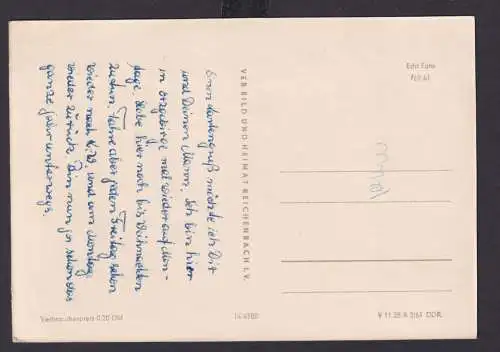 Einen Kartengruß möchte ich Dir
und Deinen Mann. Ich bin hier
in Erzgebirge mal wieder auf Mon-
tage. Habe hier noch bis Weihnachten
zu tun. Fahre aber jeden Freitag schon
wieder nach K.W. und am Montag
wieder zurück. Bin nun ja schon das
ganze Jahr unterwegs.
VEB BILD UND HEIMAT REICHENBACH I. V.
Echt Foto
Verbraucherpreis 0,20 DM
V 11 28 A 3/61 DDR